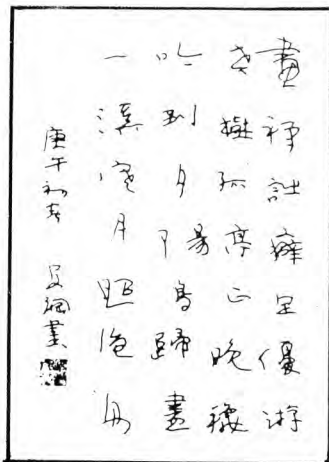 畫禪詩癖足優游
老樹孤亭正晚穐
吟到夕陽鳥歸盡
一溪寒月照漁舟
庚午初春
書